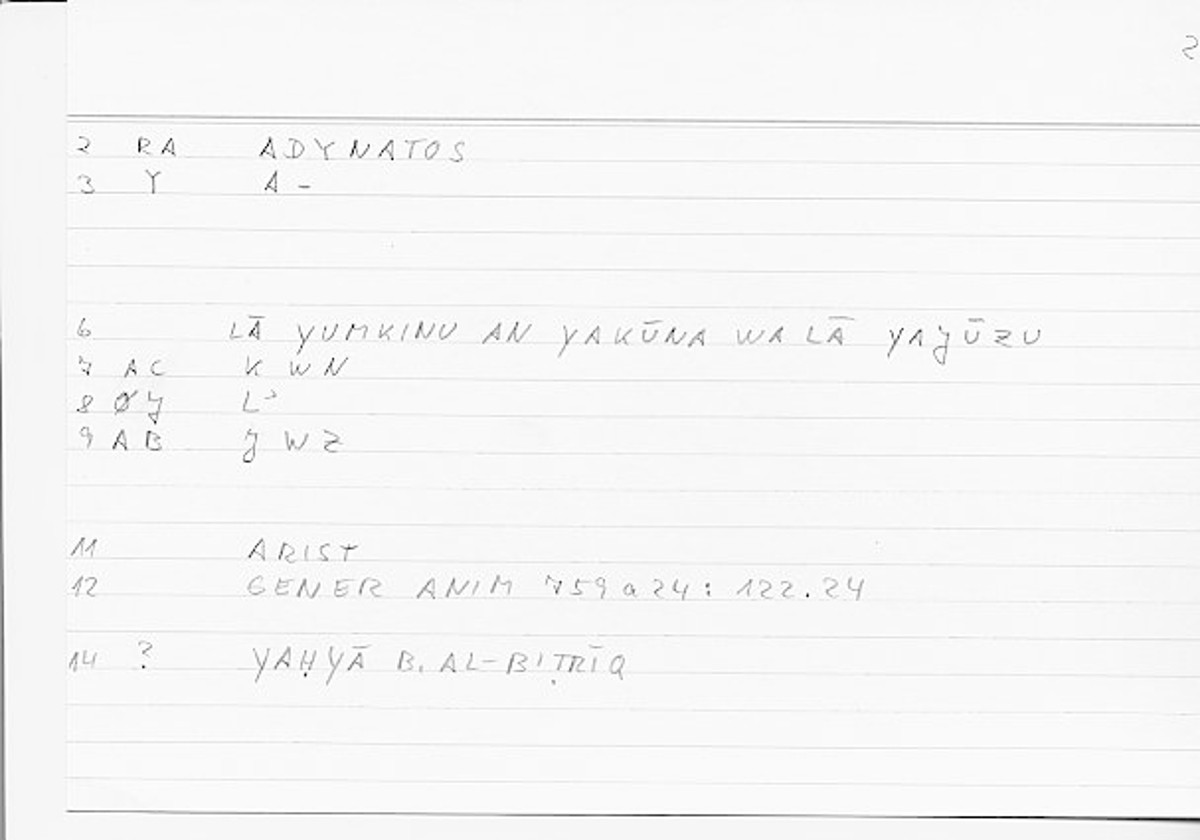 2
2 RA ADYNATOS
3 Y A-
6 LĀ YUMKINU AN YAKŪNA WA LĀ YAJŪZU
7 AC K W N
8 ØJ Lʾ
9 AB J W Z
11 ARIST
12 GENER ANIM 759a24: 122.24
14 ? YAḤYĀ B. AL-BIṬRĪQ